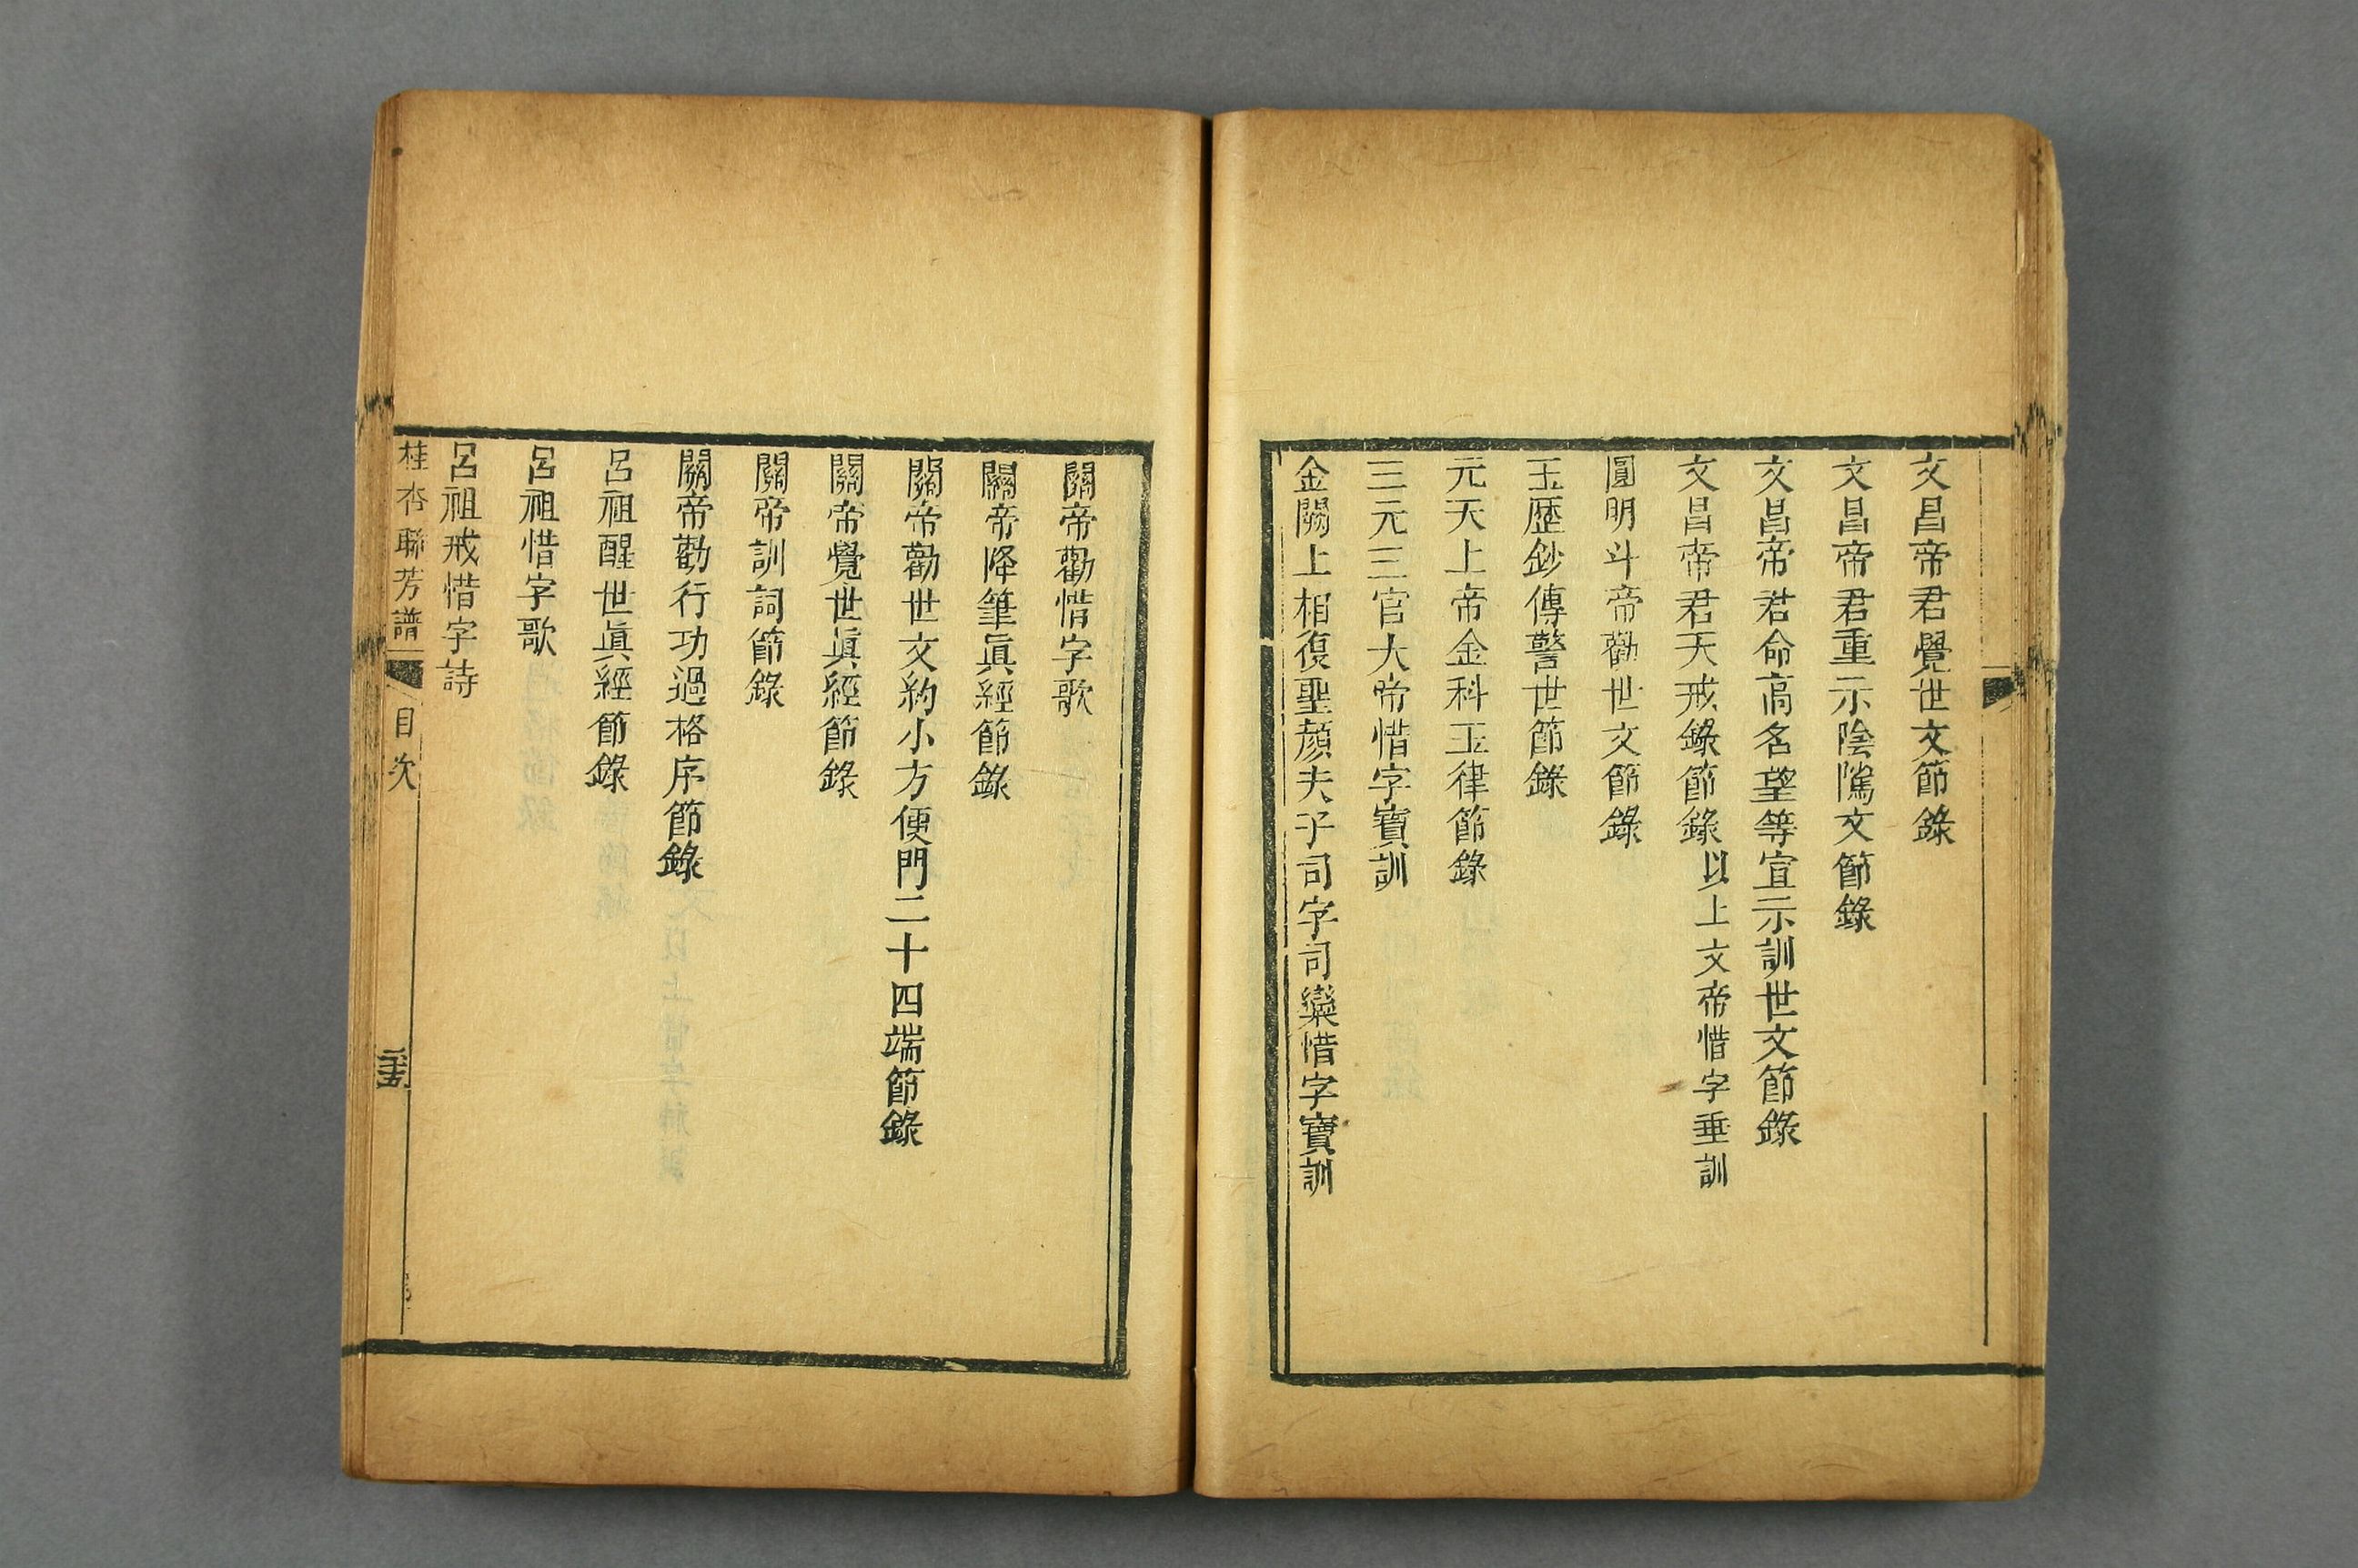 文昌帝君覺世文節錄
文昌帝君重示陰隲文節錄
文昌帝君命高名望等宣示訓世文節錄
文昌帝君天戒錄節錄以上文帝惜字垂訓
圓明斗帝勸世文節錄
玉歷鈔傳警世節錄
元天上帝金科玉律節錄
三元三官大帝惜字寶訓
金闕上相復聖顏夫子司字司欒惜字寶訓
關帝勸惜字歌
關帝降筆眞經節錄
關帝勸世文約小方便門二十四端節錄
關帝覺世眞經節錄
關帝訓詞節錄
關帝勸行功過格序節錄
呂祖醒世眞經節錄
呂祖惜字歌
呂祖戒惜字詩
桂杏聯芳譜 目次